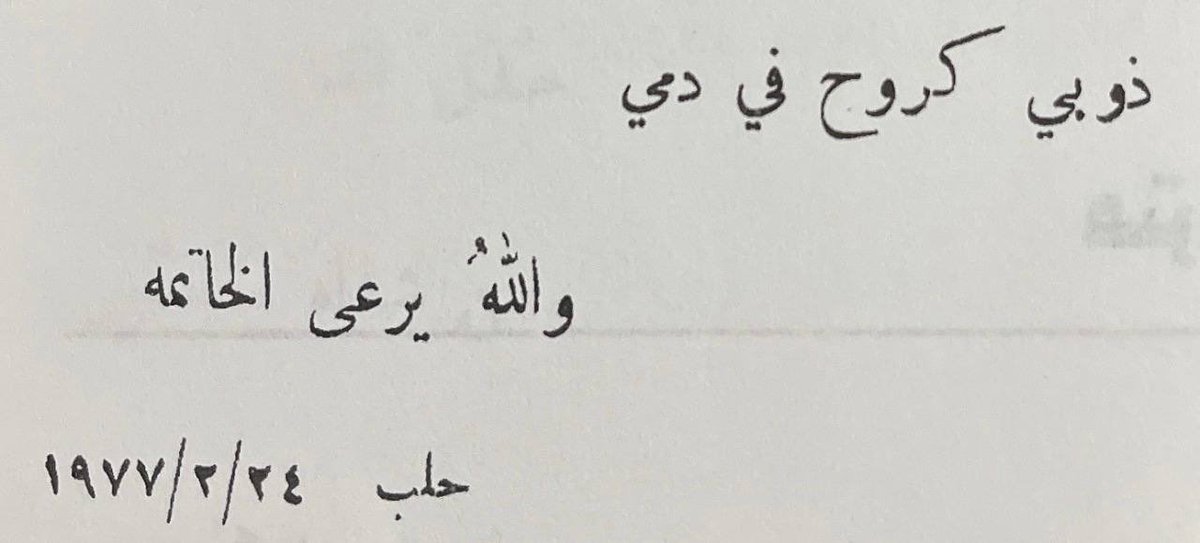 ذوبي كروح في دمي
واللهُ يرعى الخاتمه
حلب ٢٤/٢/١٩٧٧